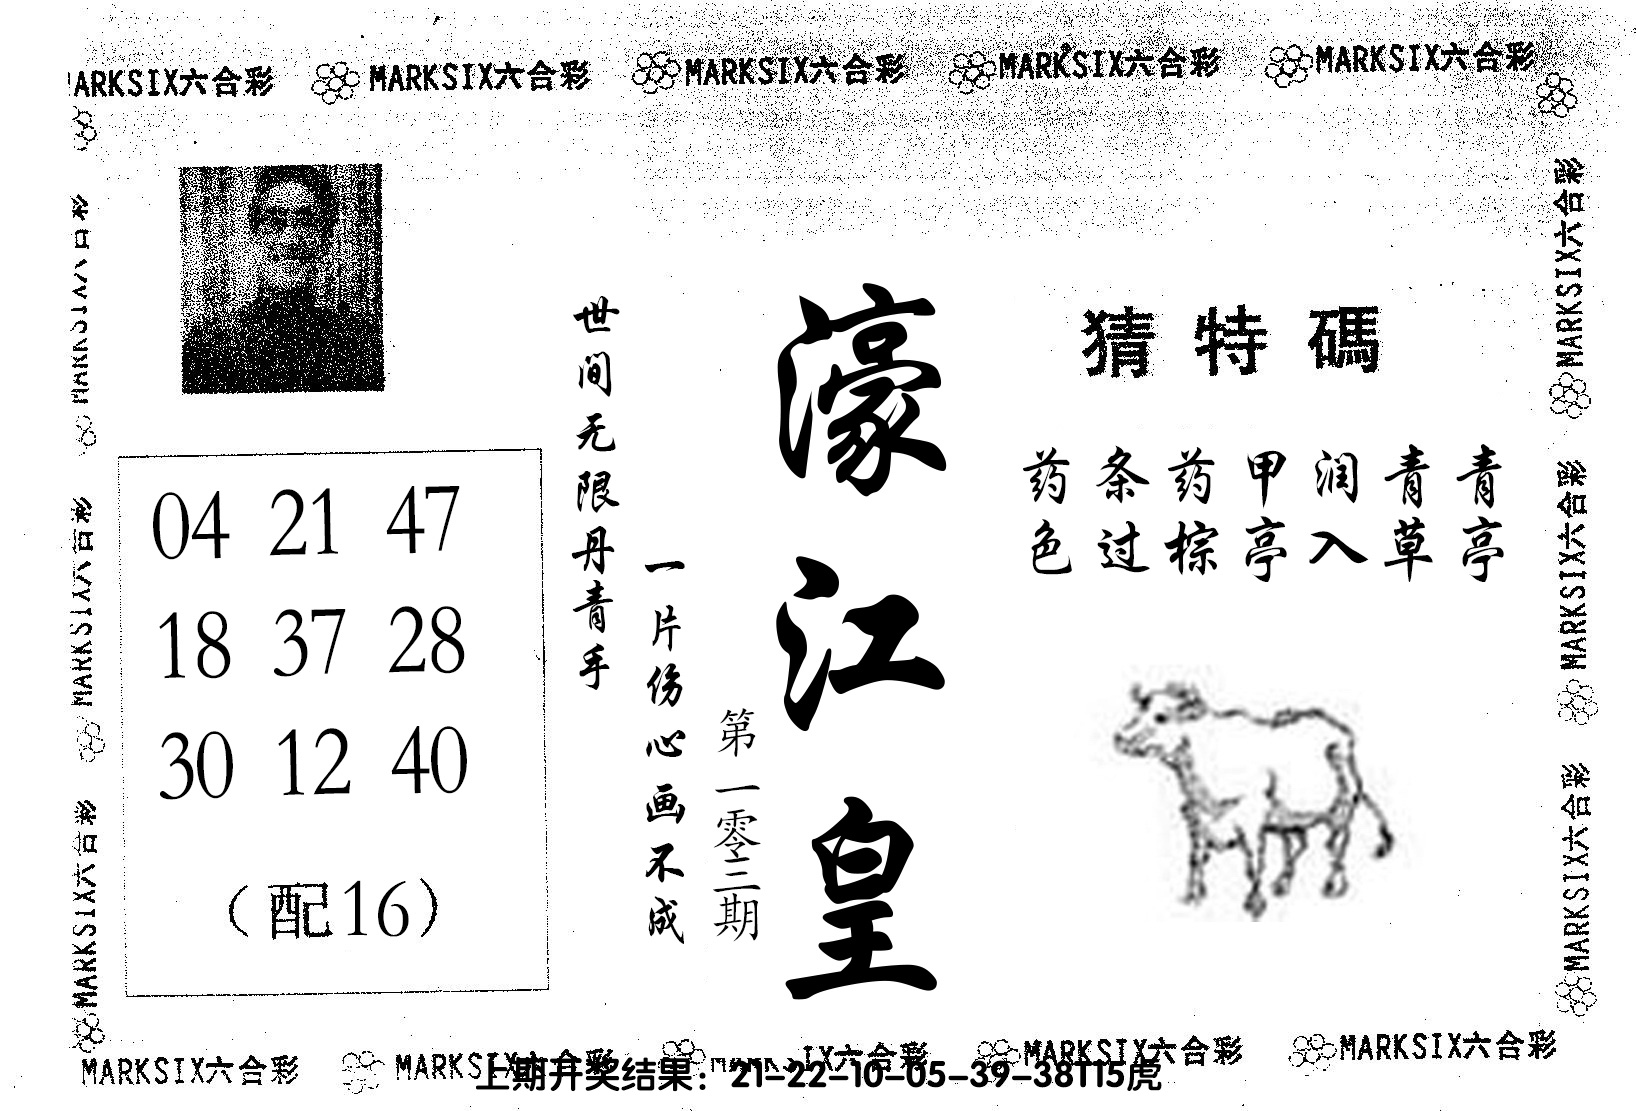 MARKSIX六合彩 MARKSIX六合彩 MARKSIX六合彩 MARKSIX六合彩 MARKSIX六合彩
猜特碼
药条药甲润青青
色过棕亭入草亭
濠江皇
第一零三期
世间无限丹青手
一片伤心画不成
04 21 47
18 37 28
30 12 40
(配16)
MARKSIX六合彩
MARKSIX六合彩
MARKSIX六合彩
MARKSIX六合彩
MARKSIX六合彩
MARKSIX六合彩
MARKSIX六合彩 MARKSIX六合彩 IX六合彩 MARKSIX六合彩 MARKSIX六合彩
上期开奖结果：21-22-10-05-39-38T15虎